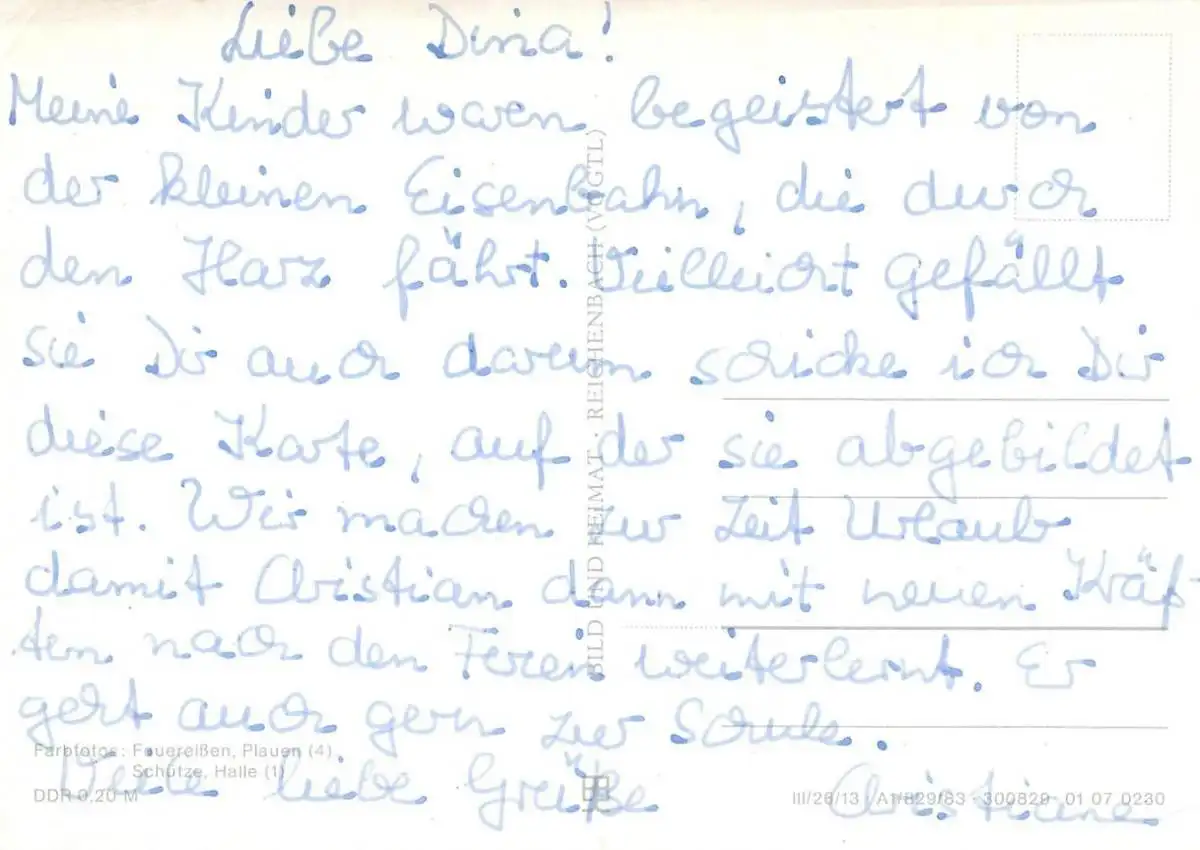 Liebe Dina!
Meine Kinder waren begeistert von
der kleinen Eisenbahn, die durch
den Harz fährt. Vielleicht gefällt
sie Dir auch darum schicke ich Dir
diese Karte, auf der sie abgebildet
ist. Wir machen zur Zeit Urlaub
damit Christian dann mit neuen Kräf-
ten nach den Ferien weiterlernt. Er
geht auch gern zur Schule.
Viele liebe Grüße Christiane
BILD UND HEIMAT · REICHENBACH (VOGTL)
Farbfotos: Feuereißen, Plauen (4)
Schütze, Halle (1)
DDR 0,20 M
III/26/13 · A1/829/83 · 300829 01 07 0230